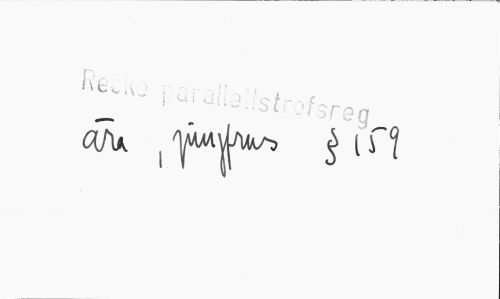 Recke parallellstrofsreg
ära, jungfrus § 159